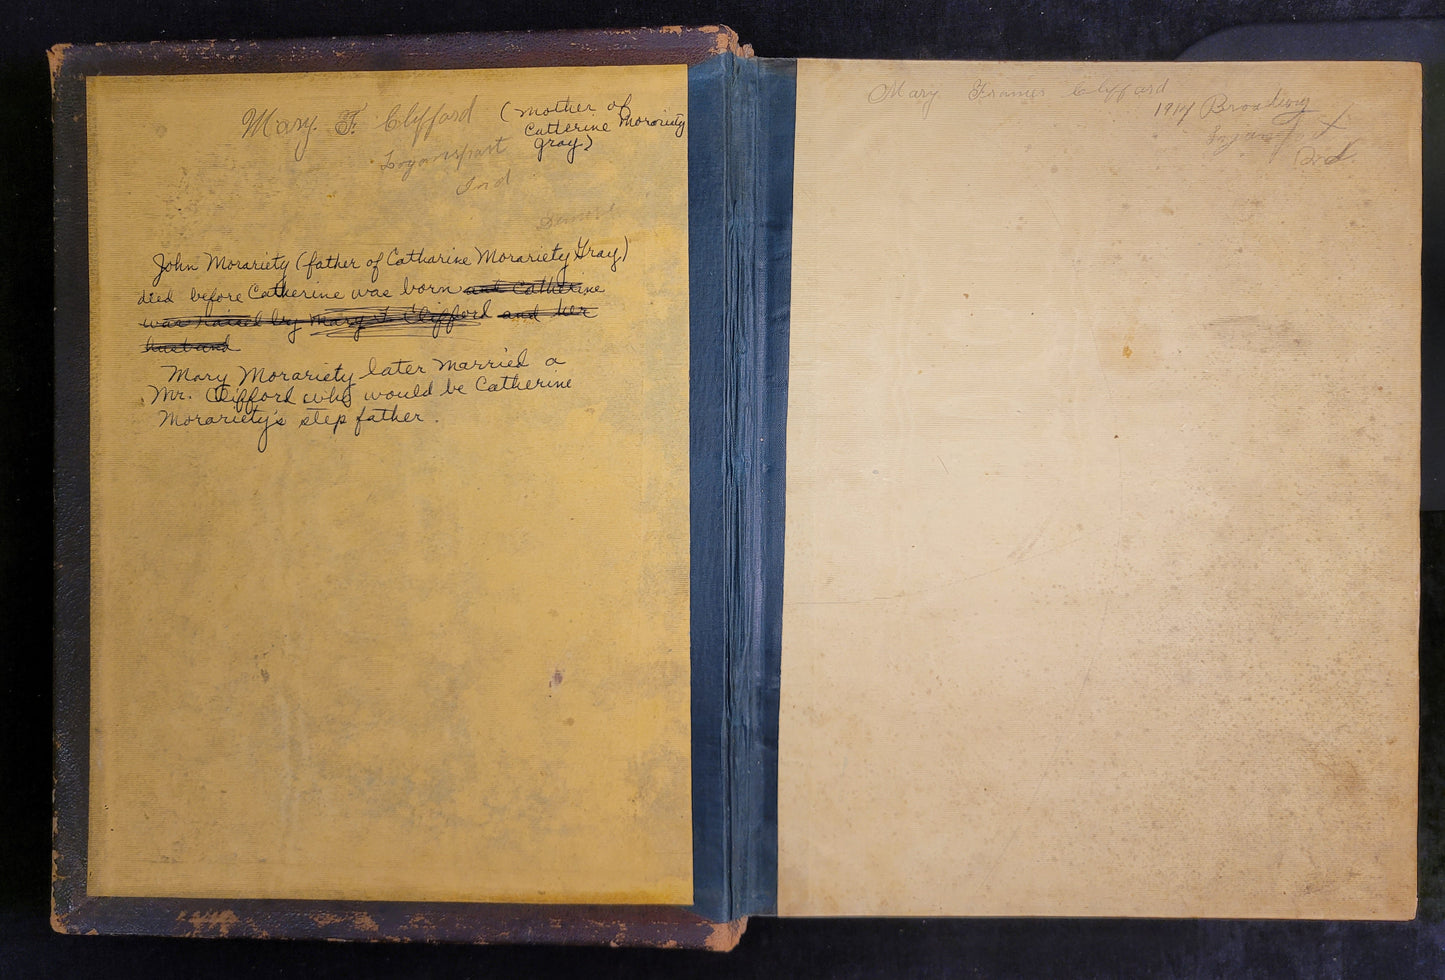 Mary. F. Clifford
(Mother of
Catherine Morariety
Gray)
Logansport
Ind
John Morariety (father of Catharine Morariety Gray)
died before Catherine was born and Catherine
was raised by Mary F. Clifford and her
husband
Mary Morariety later married a
Mr. Clifford who would be Catherine
Morariety's step father.
Mary Frances Clifford
1914 Broadway
Ind.